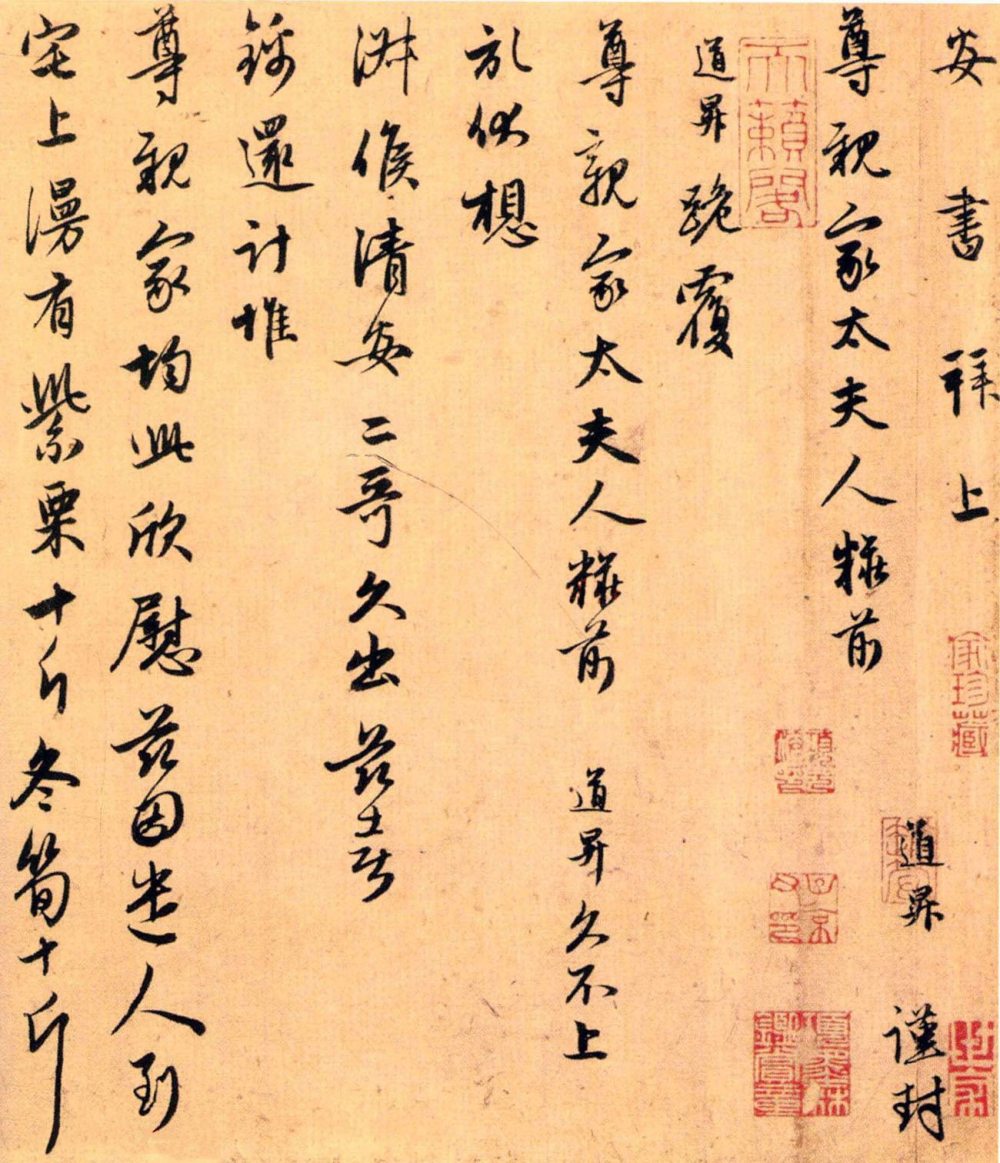 安書拜上
尊親家太夫人粧前
道昇 謹封
道昇跪覆
尊親家太夫人粧前 道昇久不上
狀伏想
淑候清安二哥久出茲喜
錦還計惟
尊親家均此欣慰茲因遣人到
宅上漫有紫栗十斤冬笋十斤
天籟閣